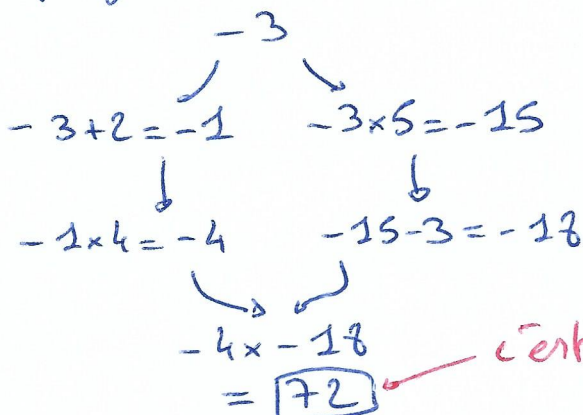 -3
-3+2=-1 -3×5=-15
-1×4=-4 -15-3=-18
-4×-18
=72 c'est